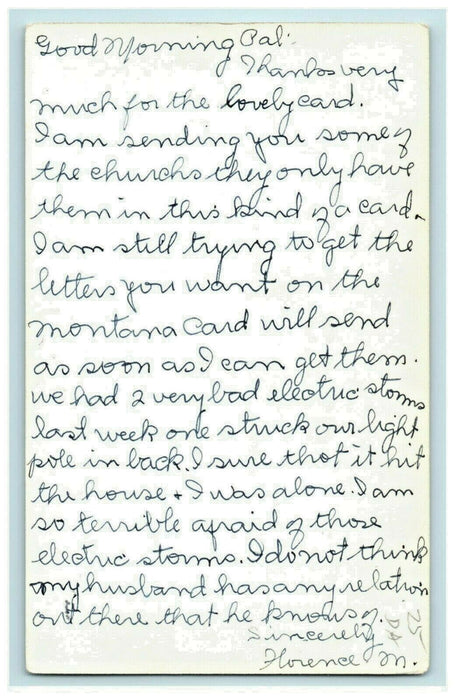 Good Morning Pal:
Thanks very
much for the lovely card.
I am sending you some of
the churchs they only have
them in this kind of a card.
I am still trying to get the
letters you want on the
montana Card will send
as soon as I can get them.
we had 2 very bad electric storms
last week one struck our light
pole in back. I sure thot it hit
the house + I was alone. I am
so terrible afraid of those
electric storms. I do not think
my husband has any relation
out there that he knows of.
Sincerely
Florence M.
25